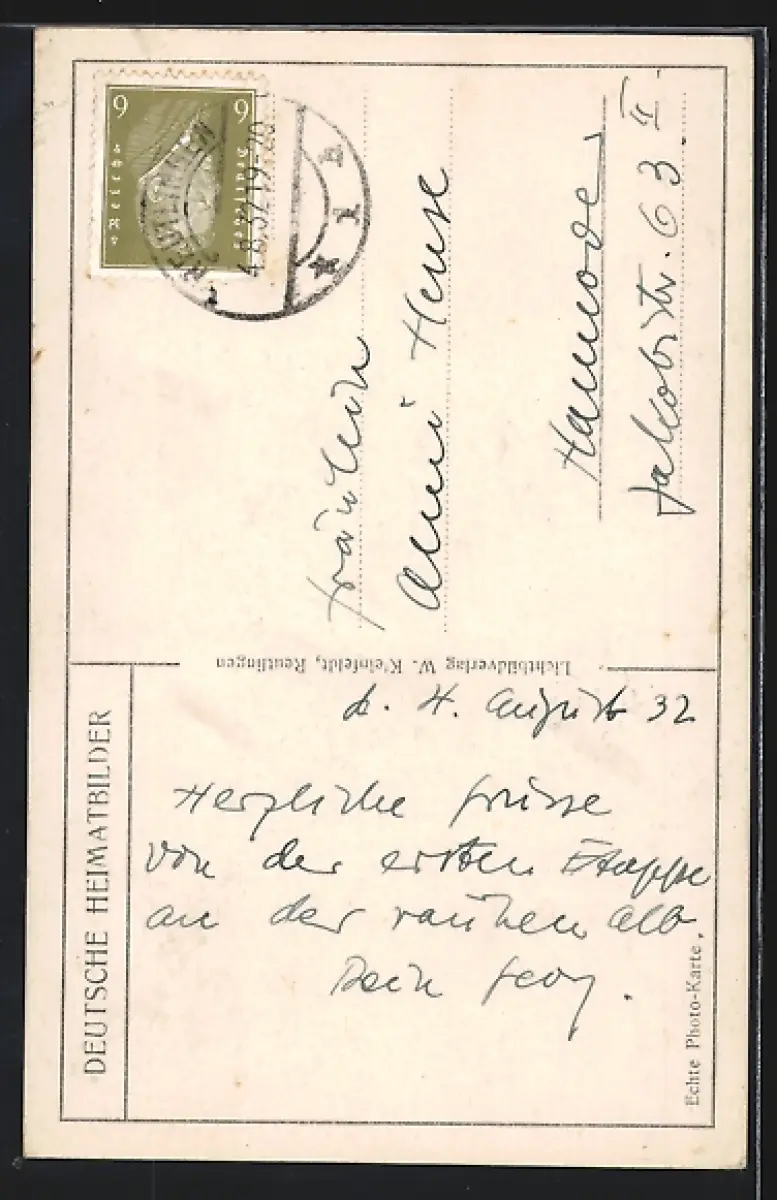 DEUTSCHE HEIMATBILDER
d. 4. August 32
Herzliche Grüsse
von der ersten Etappe
an der rauhen Alb
Dein Georg.
Fräulein
Anni Hense
Hannover
Jakobistr. 63 II
6 6
Deutsches
Reich
REUTLINGEN
4.8.32 19-20
* 1 b
Lichtbildverlag W. Kleinfeldt, Reutlingen
Echte Photo-Karte.